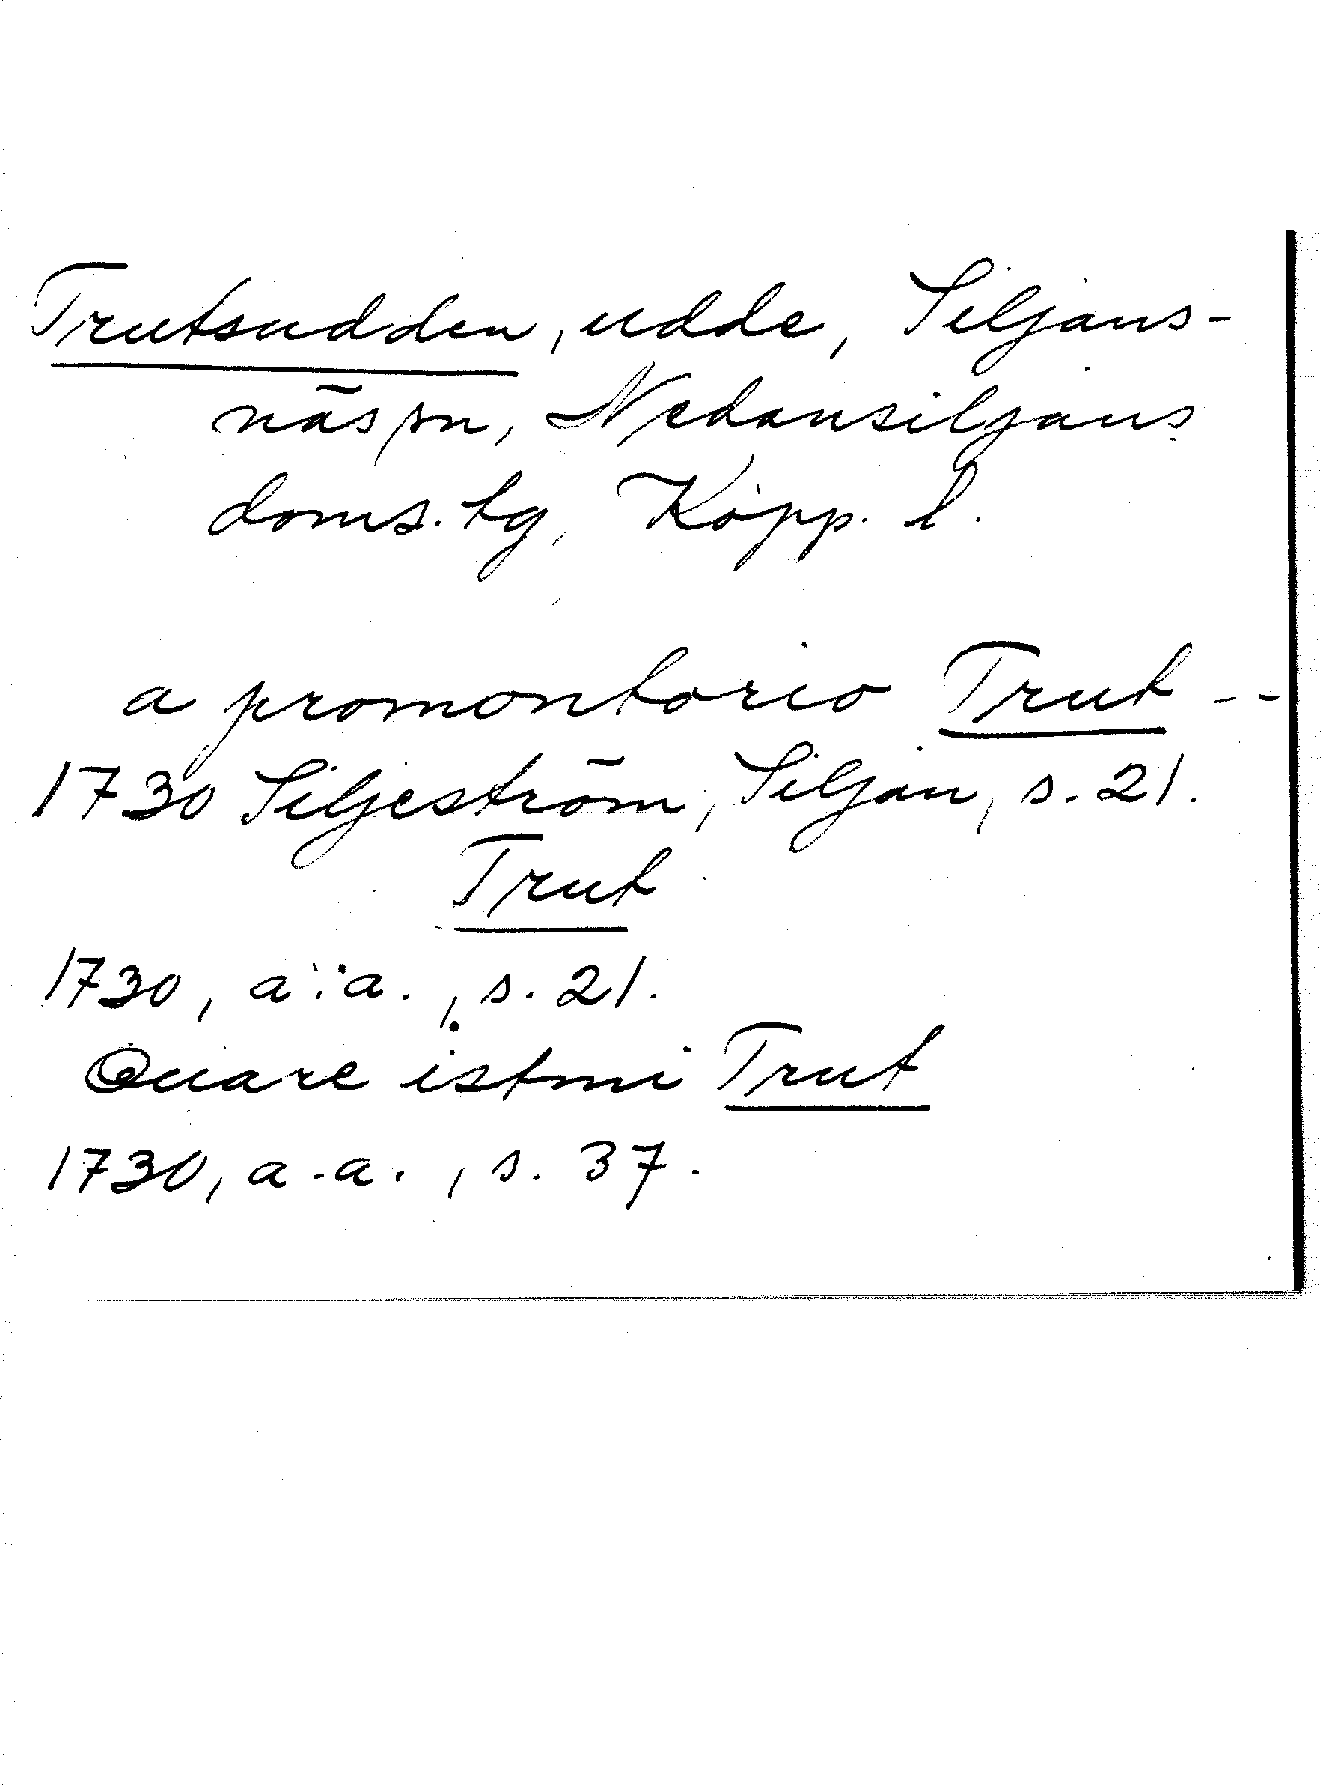 Trutsudden, udde, Siljans-
näs sn, Nedansiljans
doms. tg, Kopp. l.
a promontorio Trut --
1730 Siljeström, Siljan, s. 21.
Trut
1730, a. a., s. 21.
Quare istmi Trut
1730, a. a., s. 37.